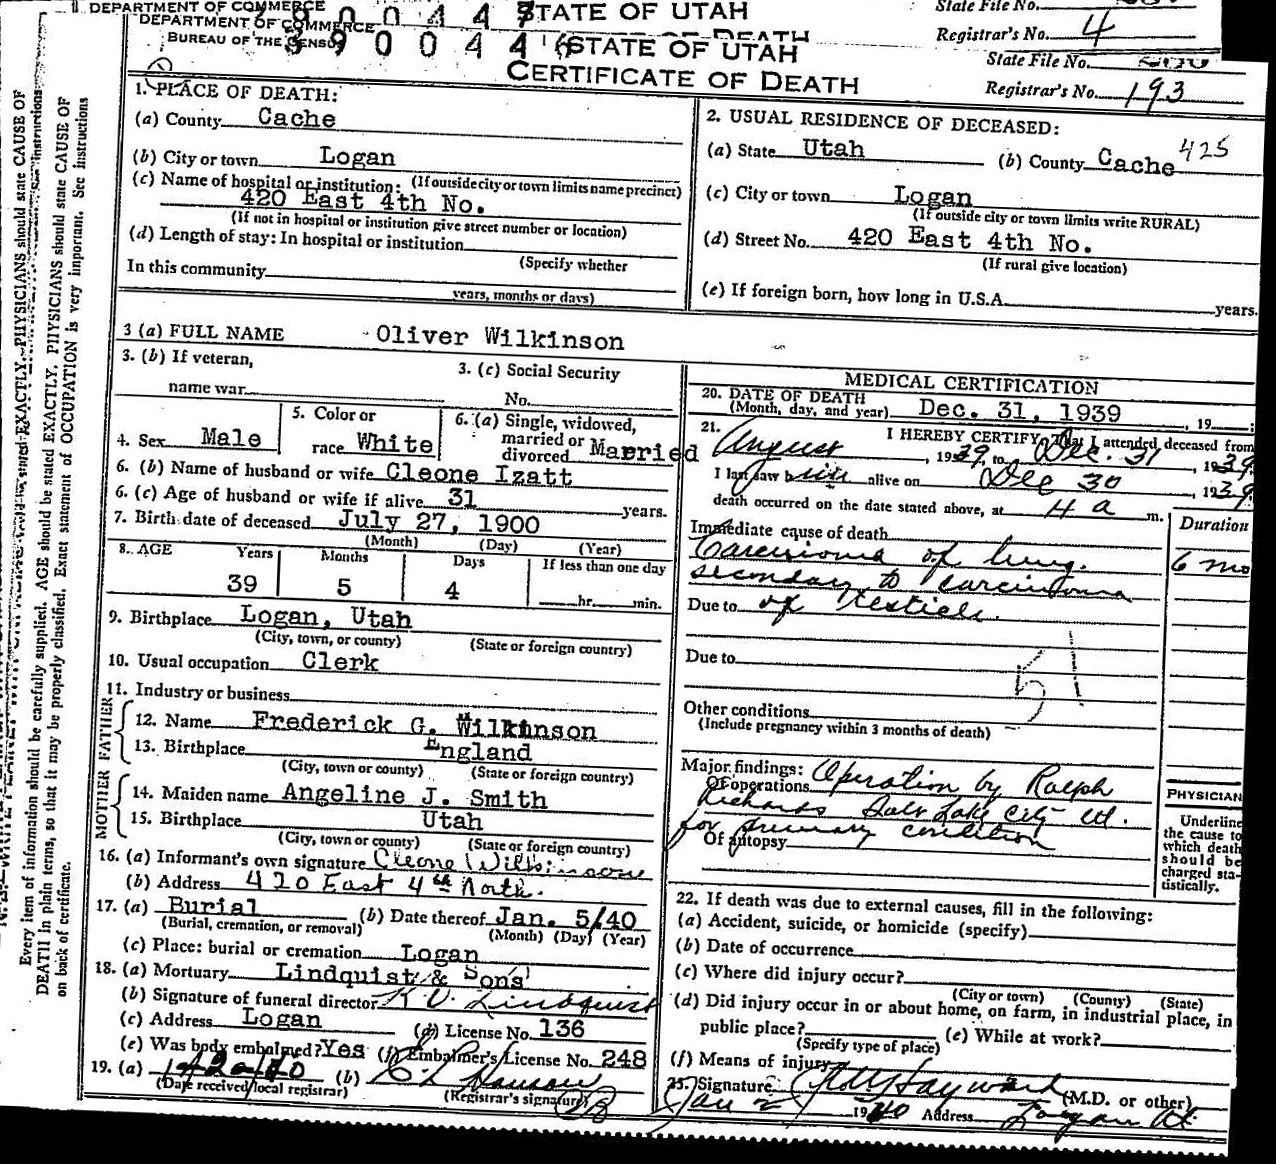 DEPARTMENT OF COMMERCE
STATE OF UTAH
State File No.
DEPARTMENT OF COMMERCE
Registrar's No. 4
BUREAU OF THE CENSUS
390044
STATE OF UTAH
State File No.
CERTIFICATE OF DEATH
Registrar's No. 193
Every item of information should be carefully supplied. AGE should be stated EXACTLY. PHYSICIANS should state CAUSE OF
DEATH in plain terms, so that it may be properly classified. Exact statement of OCCUPATION is very important. See instructions
on back of certificate.
1. PLACE OF DEATH:
(a) County Cache
(b) City or town Logan
(c) Name of hospital or institution: (If outside city or town limits name precinct)
420 East 4th No.
(If not in hospital or institution give street number or location)
(d) Length of stay: In hospital or institution
(Specify whether
In this community
years, months or days)
2. USUAL RESIDENCE OF DECEASED:
425
(a) State Utah (b) County Cache
(c) City or town Logan
(If outside city or town limits write RURAL)
(d) Street No. 420 East 4th No.
(If rural give location)
(e) If foreign born, how long in U.S.A. years.
3 (a) FULL NAME Oliver Wilkinson
3. (b) If veteran,
name war
3. (c) Social Security
No.
4. Sex Male
5. Color or
race White
6. (a) Single, widowed,
married or
divorced Married
6. (b) Name of husband or wife Cleone Izatt
6. (c) Age of husband or wife if alive 31 years.
7. Birth date of deceased July 27, 1900
(Month) (Day) (Year)
8. AGE Years Months Days If less than one day
39 5 4 hr. min.
9. Birthplace Logan, Utah
(City, town, or county) (State or foreign country)
10. Usual occupation Clerk
11. Industry or business
FATHER
12. Name Frederick G. Wilkinson
13. Birthplace England
(City, town or county) (State or foreign country)
MOTHER
14. Maiden name Angeline J. Smith
15. Birthplace Utah
(City, town or county) (State or foreign country)
16. (a) Informant's own signature Cleone Wilkinson
(b) Address 420 East 4th North.
17. (a) Burial (b) Date thereof Jan. 5/40
(Burial, cremation, or removal) (Month) (Day) (Year)
(c) Place: burial or cremation Logan
18. (a) Mortuary Lindquist & Sons
(b) Signature of funeral director K V. Lindquist
(c) Address Logan (d) License No. 136
(e) Was body embalmed? Yes (f) Embalmer's License No. 248
19. (a) (b)
(Date received local registrar) (Registrar's signature)
MEDICAL CERTIFICATION
20. DATE OF DEATH
(Month, day, and year) Dec. 31, 1939, 19
21. I HEREBY CERTIFY, That I attended deceased from
August, 1939, to Dec. 31, 1939
I last saw him alive on Dec 30, 1939
death occurred on the date stated above, at 4 a m.
Duration
Immediate cause of death
Carcinoma of lung. 6 mo
secondary to carcinoma
Due to of testicle.
Due to
51
Other conditions
(Include pregnancy within 3 months of death)
Major findings: Operation by Ralph
Of operations Richards Salt Lake City Ut.
for primary condition
Of autopsy
PHYSICIAN
Underline
the cause to
which death
should be
charged sta-
tistically.
22. If death was due to external causes, fill in the following:
(a) Accident, suicide, or homicide (specify)
(b) Date of occurrence
(c) Where did injury occur?
(City or town) (County) (State)
(d) Did injury occur in or about home, on farm, in industrial place, in
public place? (e) While at work?
(Specify type of place)
(f) Means of injury
23. Signature Hayward (M.D. or other)
Jan 2 1940 Address Logan Ut